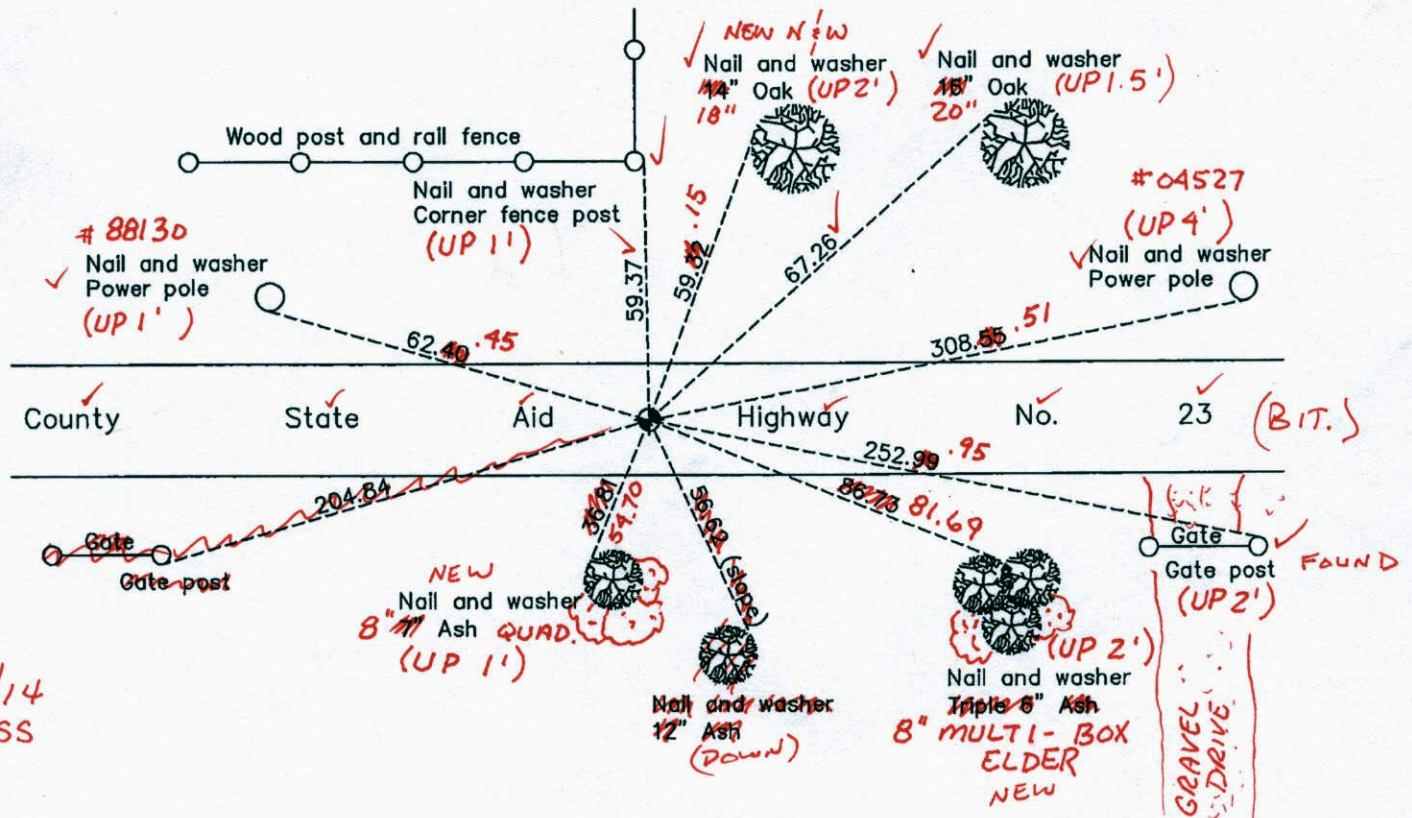 NEW N & W
Nail and washer
14" Oak (UP 2')
18"
Nail and washer
20"
Oak (UP 1.5')
Wood post and rail fence
Nail and washer
Corner fence post
(UP 1')
# 88130
Nail and washer
Power pole
(UP 1')
#04527
(UP 4')
Nail and washer
Power pole
59.37
59.32 .15
67.26
62.40 .45
308.55 .51
County State Aid Highway No. 23 (BIT.)
252.99 .95
204.84
36.81
54.70
56.69 (slope)
86.73 81.69
Gate
Gate post
NEW
Nail and washer
8" 7" Ash QUAD.
(UP 1')
Nail and washer
12" Ash
(DOWN)
(UP 2')
Nail and washer
Triple 6" Ash
8" MULTI - BOX
ELDER
NEW
Gate
Gate post
(UP 2')
FOUND
GRAVEL
DRIVE
/14
SS